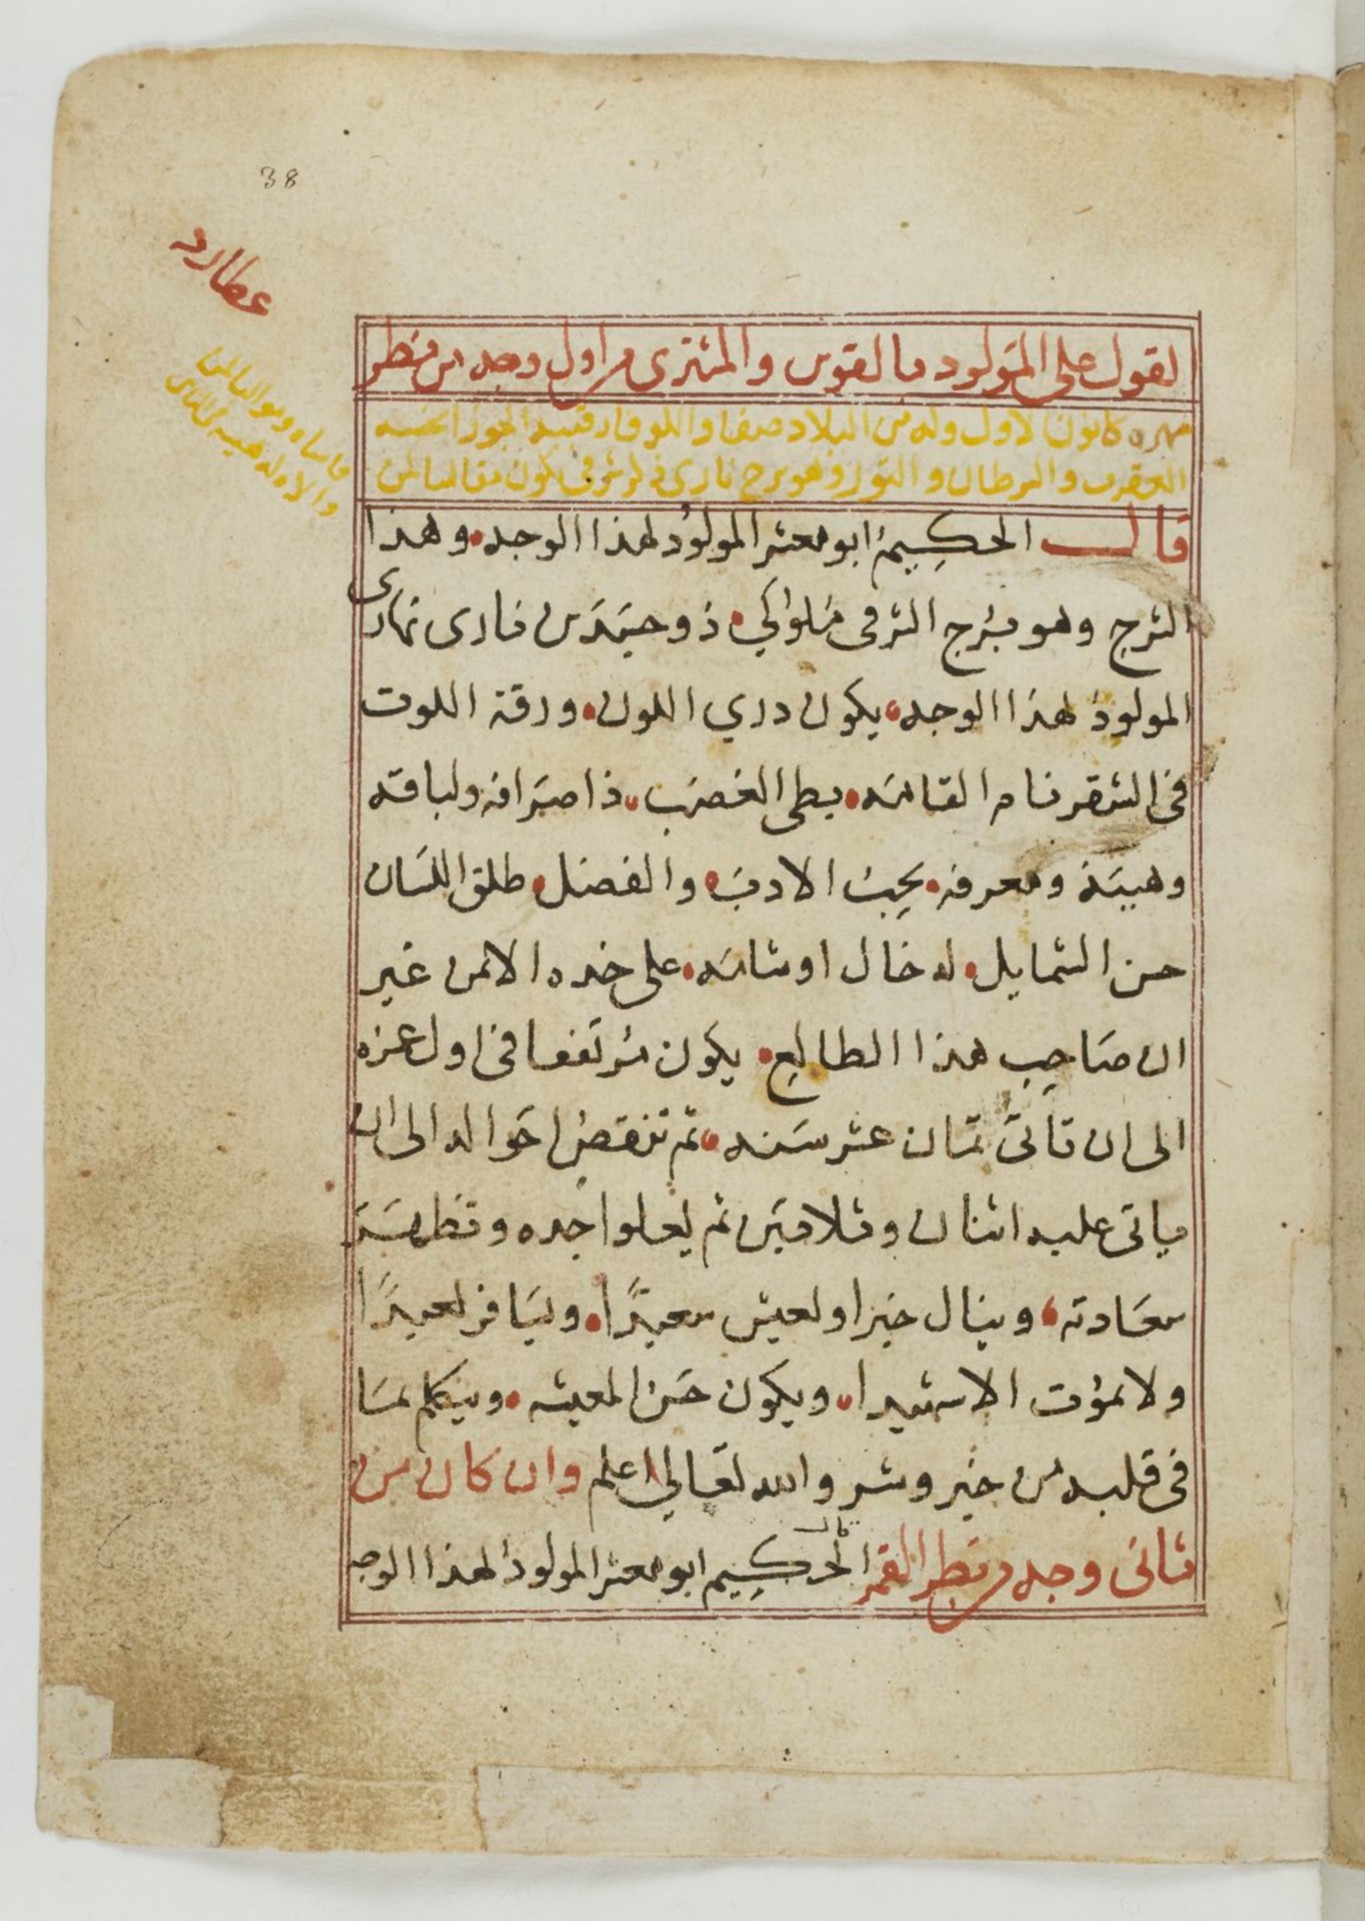 38
عطارد
لقول على المولود بالقوس والمشترى من اول وجه من نظر
كانون الاول وله من البلاد
العقرب والسرطان والثور وهو برج نارى
قال الحكيم ابو معشر المولود لهذا الوجه وهذا
البرج وهو برج الشرقى ملوكي ذو جسدين نارى نهارى
المولود لهذا الوجه يكون درى اللون ورقة اللوت
فى الشقر تام القامه بطى الغضب ذا صرافه ولباقه
وهيبة ومعرفه يحب الادب والفضل طلق اللسان
حسن الشمايل له خال او شامه على خده الايمن غير
ان صاحب هذا الطالع يكون مرتفعا فى اول عزه
الى ان تاتى ثمان عشر سنه ثم تنقض احواله الى ان
ياتى عليه اثنان وثلاثين ثم يعلوا جده وتظهر
سعادته وينال خيرا ويعيش سعيدًا ويسافر بعيدًا
ولا يموت الا شهيدا ويكون حسن المعيشه ويتكلم بما
فى قلبه من خير وشر والله تعالى اعلم وان كان من
ثانى وجه من نظر القمر قال الحكيم ابو معشر المولود لهذا الوجه